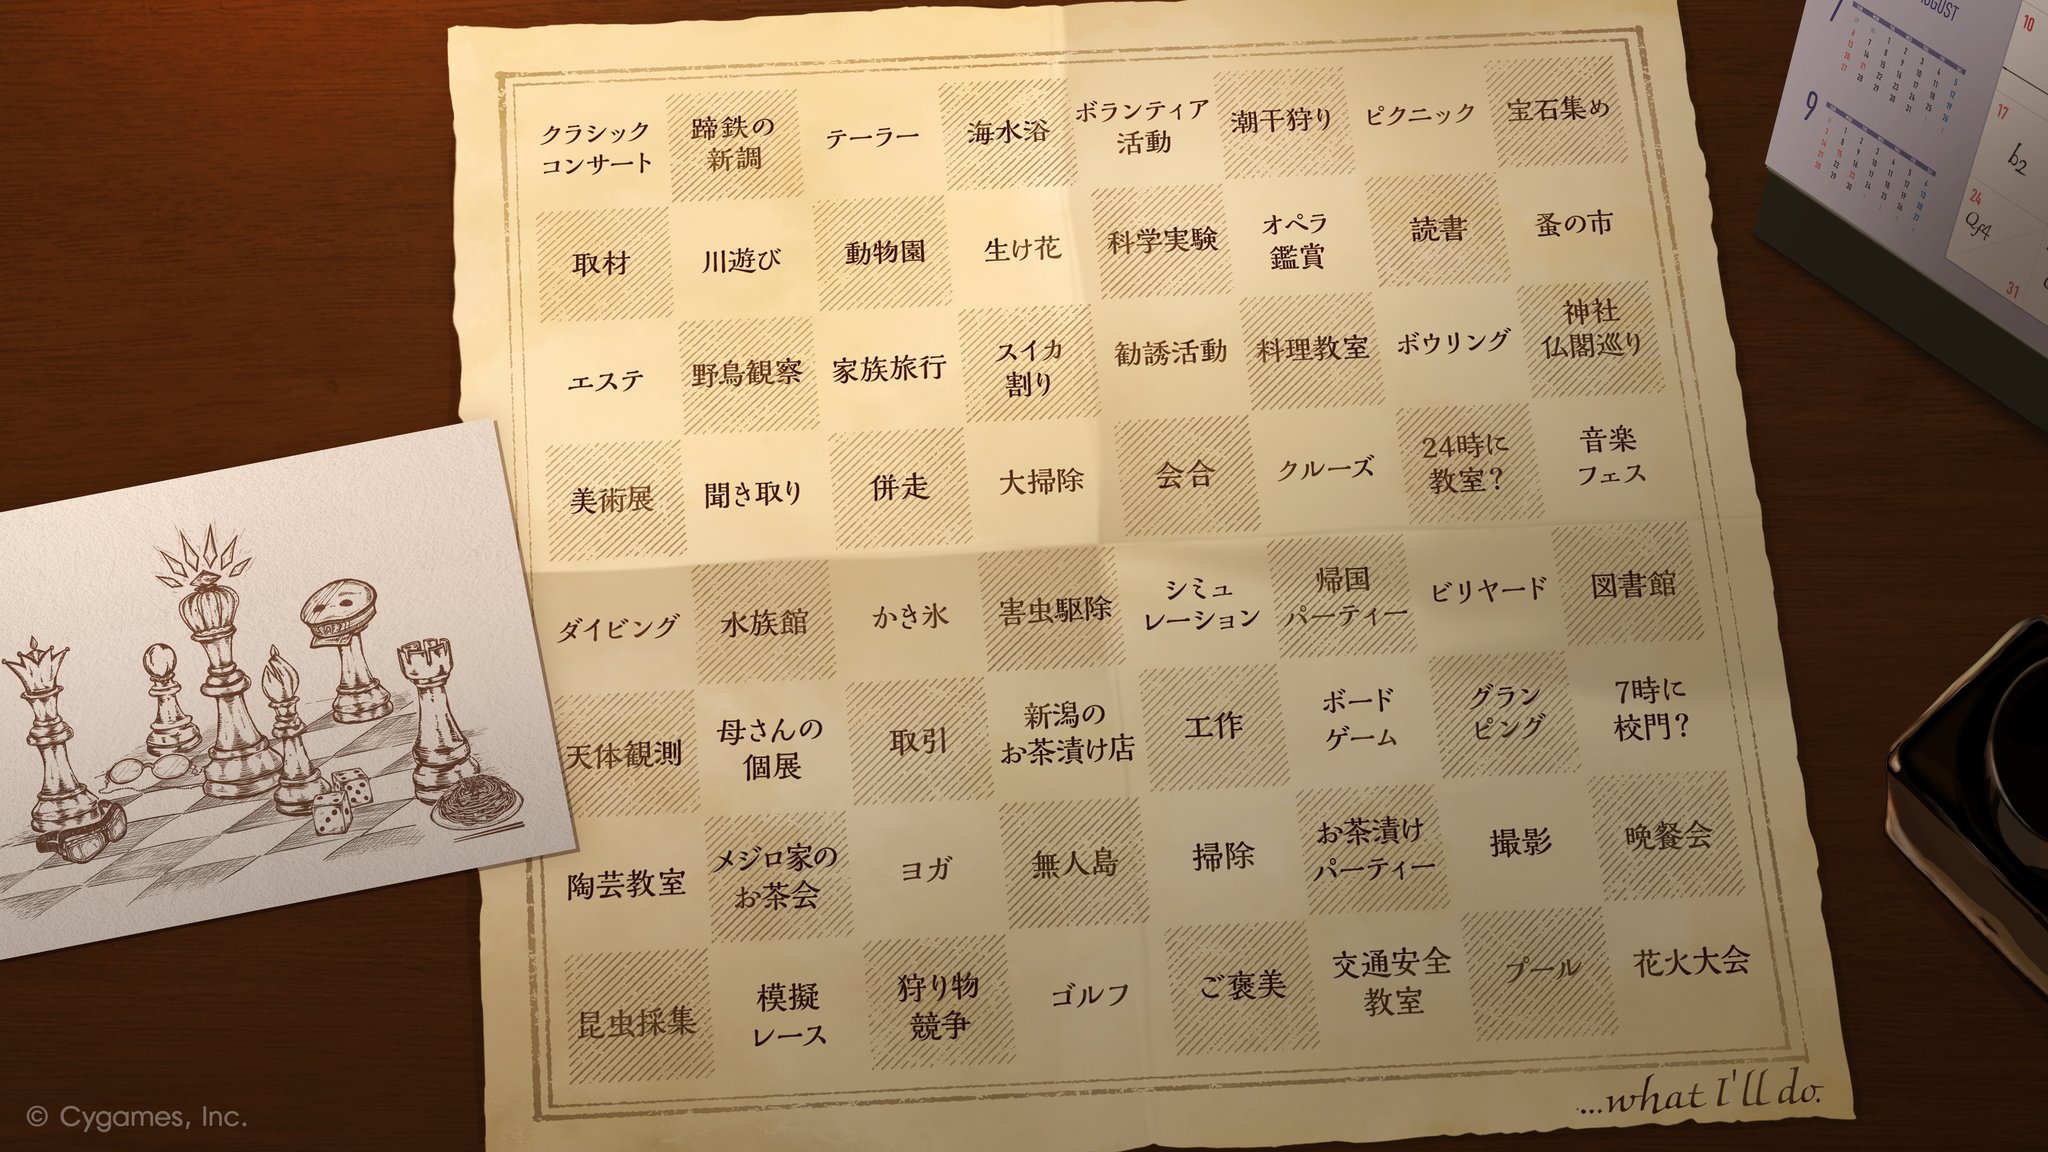 クラシック
コンサート
蹄鉄の
新調
テーラー
海水浴
ボランティア
活動
潮干狩り
ピクニック
宝石集め
取材
川遊び
動物園
生け花
科学実験
オペラ
鑑賞
読書
蚤の市
エステ
野鳥観察
家族旅行
スイカ
割り
勧誘活動
料理教室
ボウリング
神社
仏閣巡り
美術展
聞き取り
併走
大掃除
会合
クルーズ
24時に
教室?
音楽
フェス
ダイビング
水族館
かき氷
害虫駆除
シミュ
レーション
帰国
パーティー
ビリヤード
図書館
天体観測
母さんの
個展
取引
新潟の
お茶漬け店
工作
ボード
ゲーム
グラン
ピング
7時に
校門?
陶芸教室
メジロ家の
お茶会
ヨガ
無人島
掃除
お茶漬け
パーティー
撮影
晩餐会
昆虫採集
模擬
レース
狩り物
競争
ゴルフ
ご褒美
交通安全
教室
プール
花火大会
...what I'll do.
7
9
10
17
b2
24
Qf4
31
© Cygames, Inc.